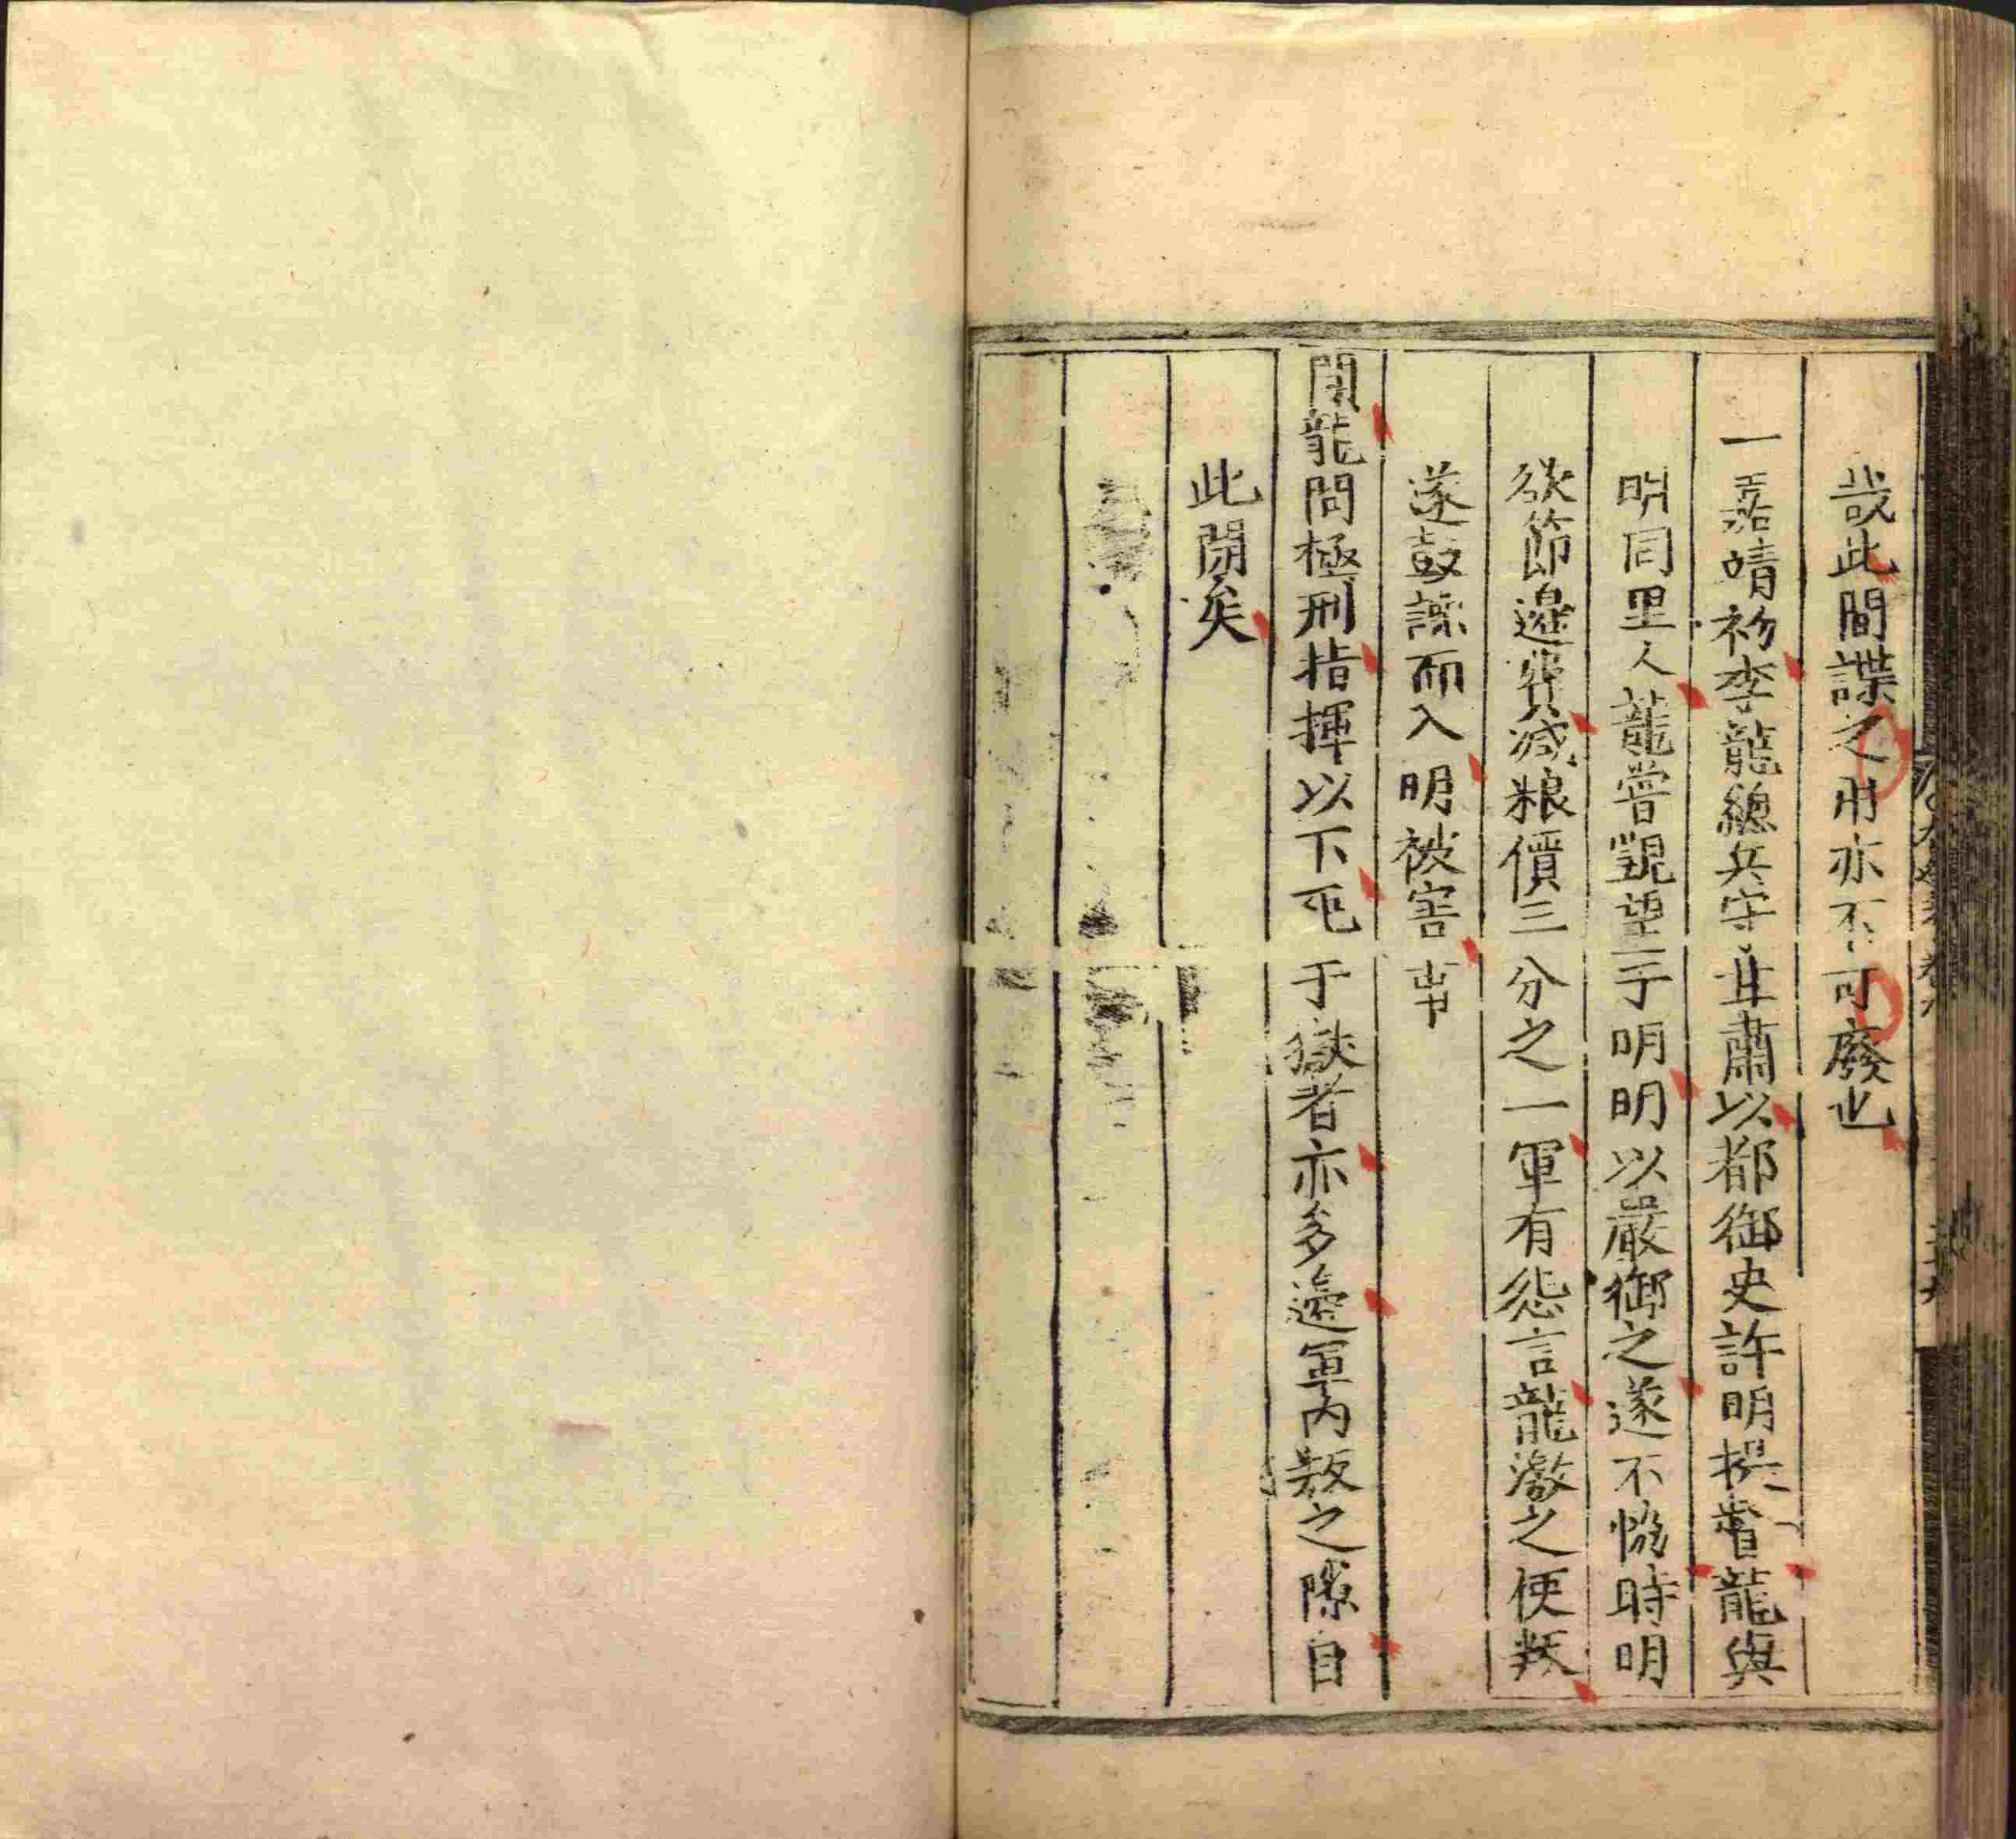 哉此間諜之用亦不可廢也
一嘉靖初李龍總兵守甘肅以都御史許明提督龍與
明同里人龍嘗覬望于明明以嚴御之遂不愜時明
欲節邊費減粮價三分之一軍有怨言龍激之使叛
遂鼓譟而入明被害事
聞龍問極刑指揮以下死于獄者亦多邊軍内叛之隙自
此開矣